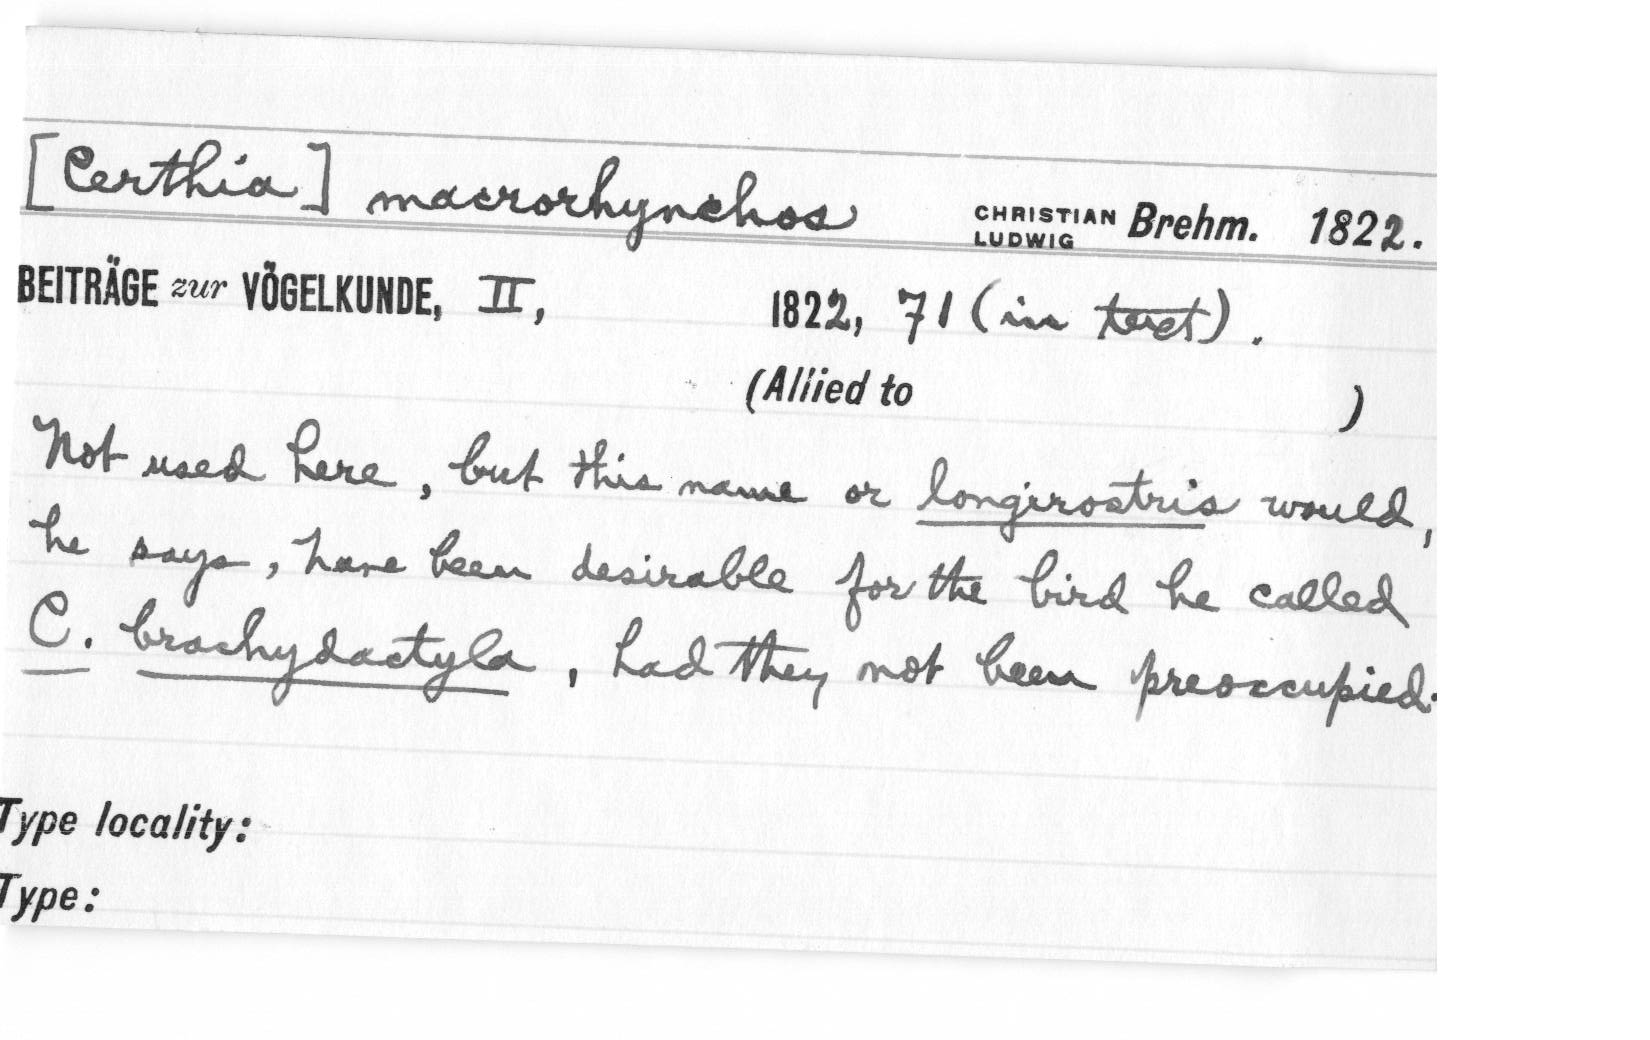 [Certhia] macrorhynchos CHRISTIAN LUDWIG Brehm. 1822.
BEITRÄGE zur VÖGELKUNDE, II, 1822, 71 (in text).
(Allied to )
Not used here, but this name or longirostris would,
he says, have been desirable for the bird he called
C. brachydactyla, had they not been preoccupied.
Type locality:
Type: